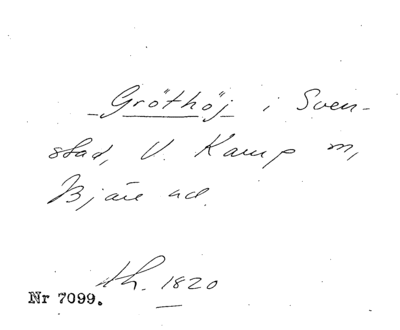 Gröthöj i Sven-
stad, V. Karup m,
Bjäre hd.
th. 1820
Nr 7099.